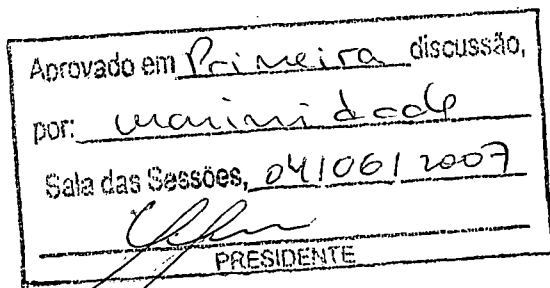 Aprovado em Primeira discussão,
por: unanimidade
Sala das Sessões, 04/06/2007
PRESIDENTE